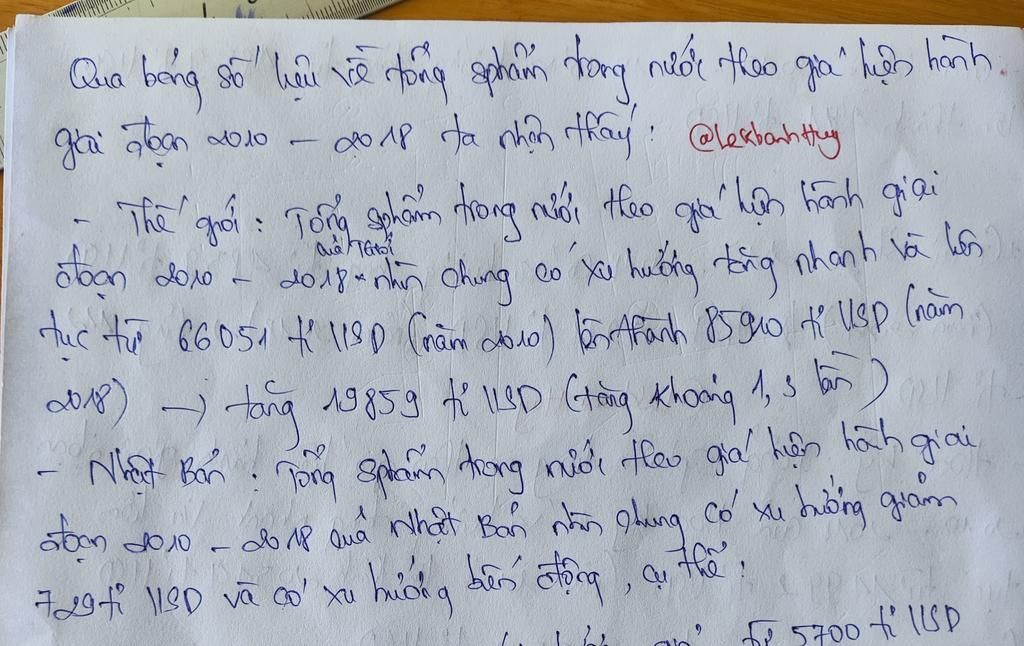 Qua bảng số liệu về tổng sphẩm trong nước theo giá hiện hành
giai đoạn 2010 - 2018 ta nhận thấy: @lekhanhhuy
- Thế giới: Tổng sphẩm trong nước theo giá hiện hành giai
của TGiới
đoạn 2010 - 2018 nhìn chung có xu hướng tăng nhanh và liên
tục từ 66051 tỉ USD (năm 2010) lên thành 85910 tỉ USD (năm
2018) → tăng 19859 tỉ USD (tăng khoảng 1,3 lần)
- Nhật Bản: Tổng sphẩm trong nước theo giá hiện hành giai
đoạn 2010 - 2018 của Nhật Bản nhìn chung có xu hướng giảm
729 tỉ USD và có xu hướng biến động, cụ thể:
từ 5700 tỉ USD